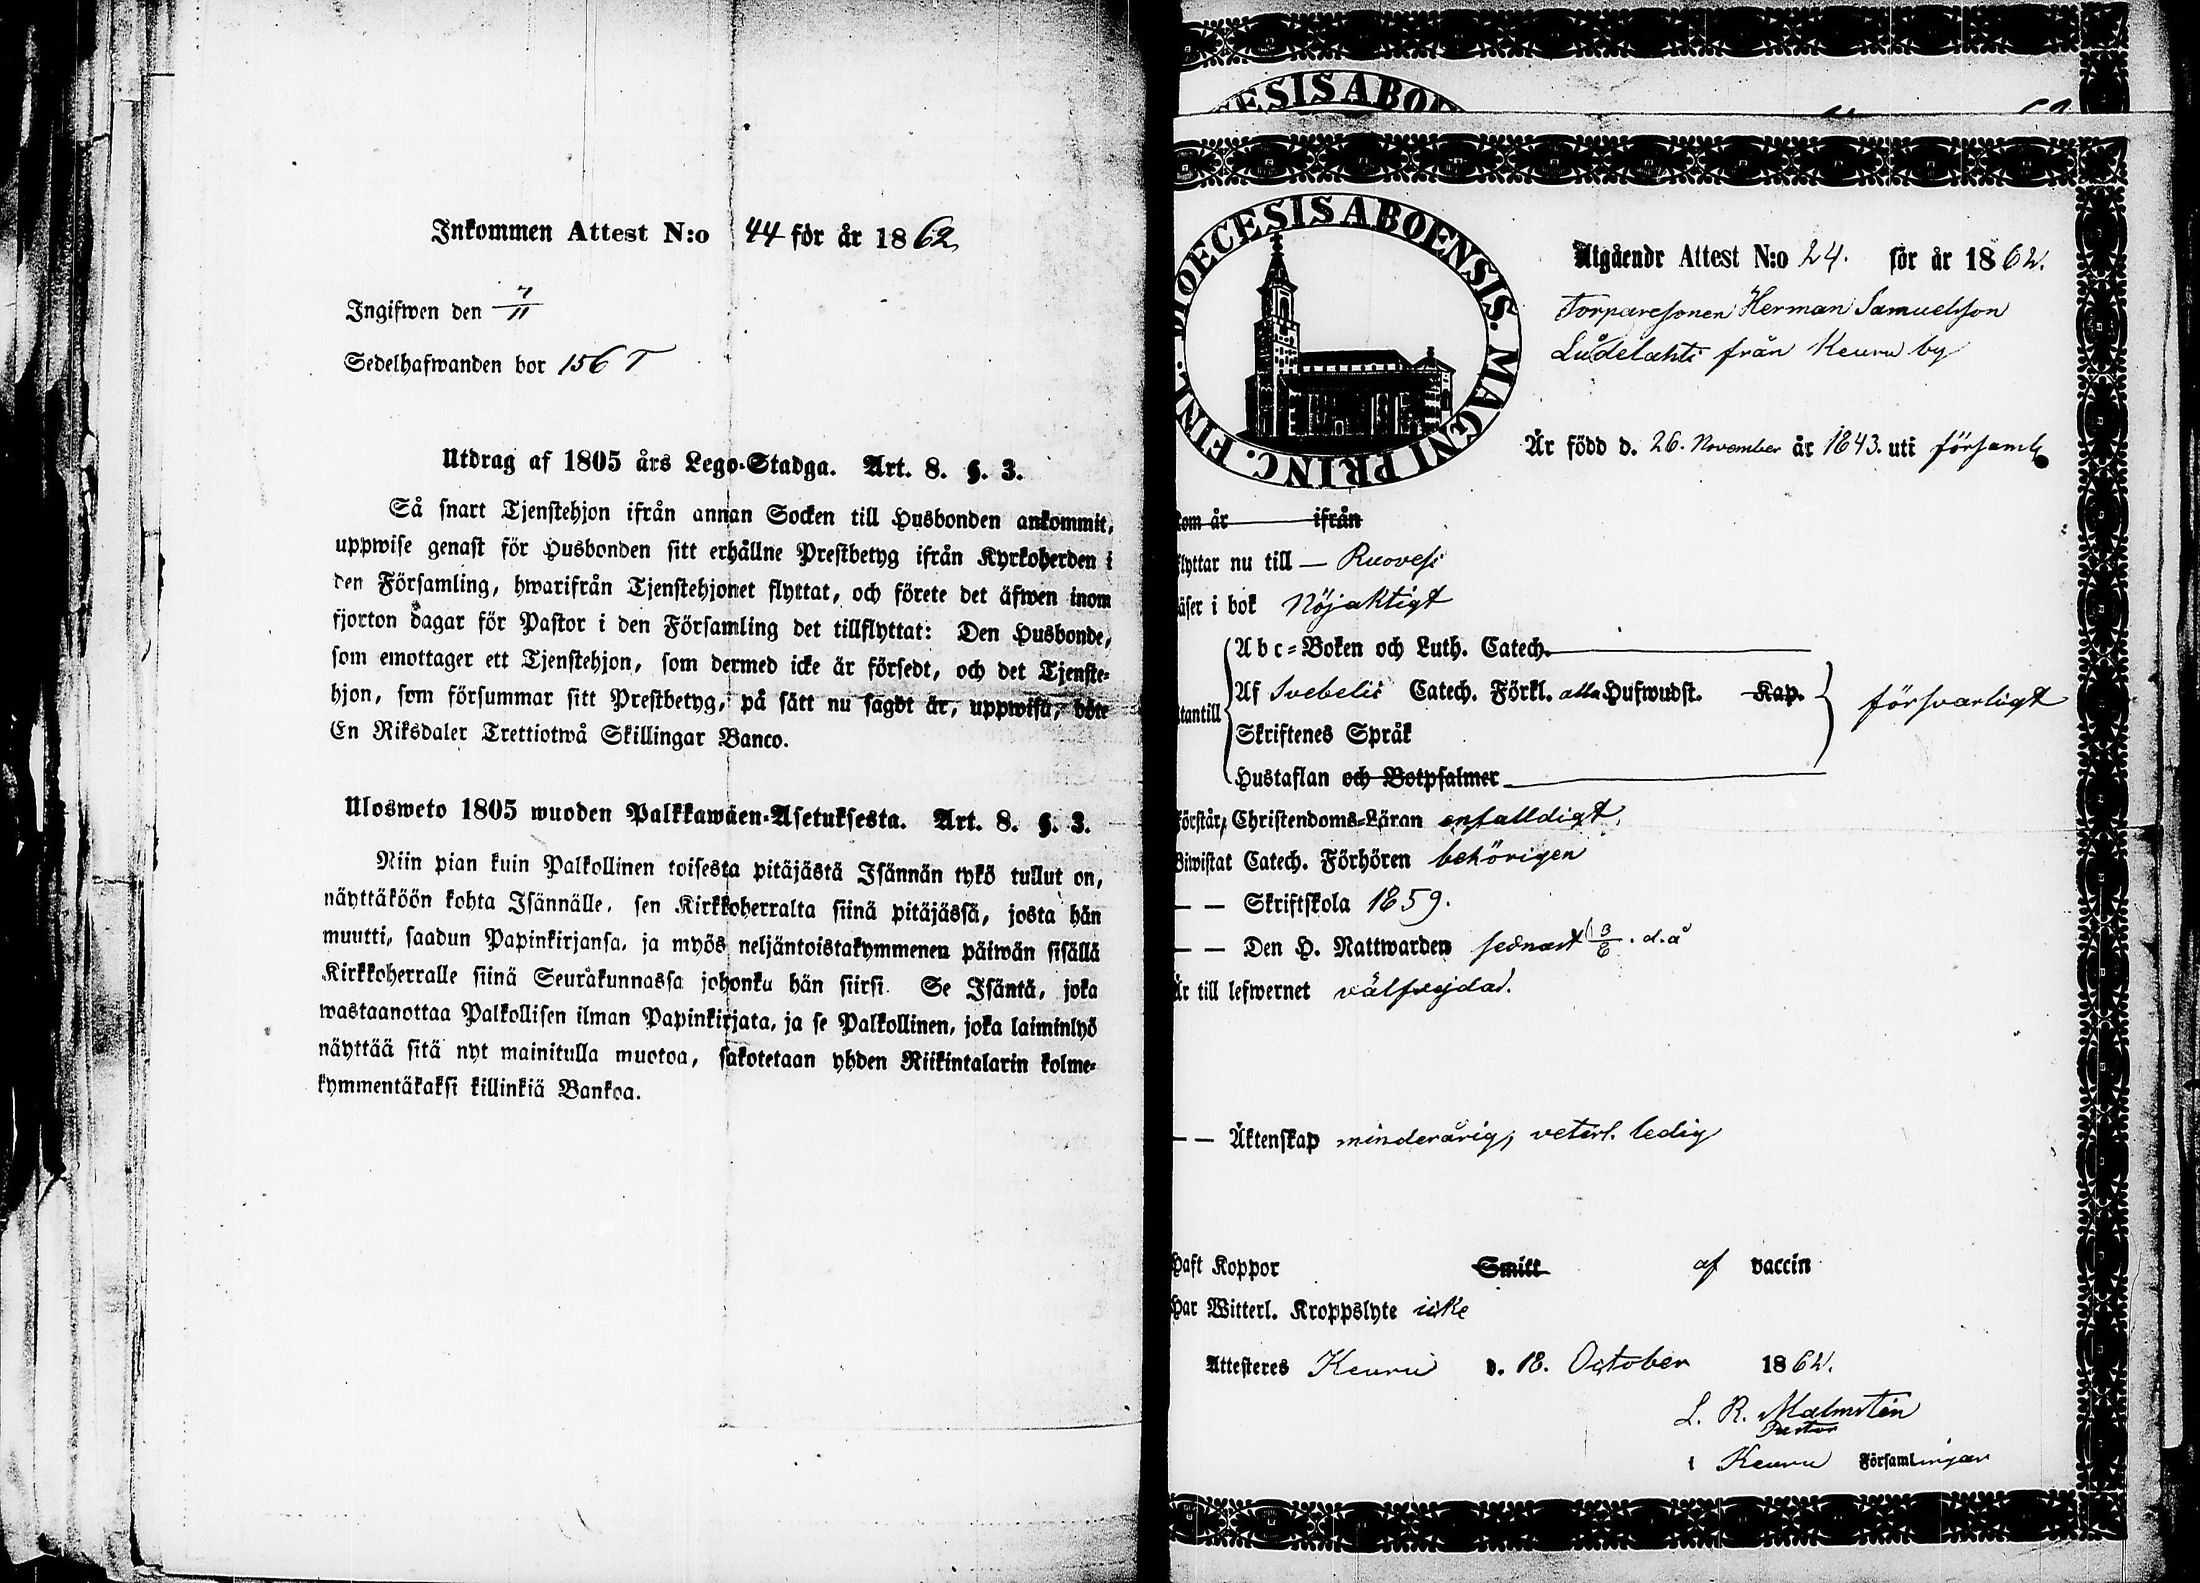 Inkommen Attest N:o 44 för år 1862
Ingifwen den 7/11
Sedelhafwanden bor 156 T
Utdrag af 1805 års Lego-Stadga. Art. 8. §. 3.
Så snart Tjenstehjon ifrån annan Socken till Husbonden ankommit,
uppwise genast för Husbonden sitt erhållne Prestbetyg ifrån Kyrkoherden i
den Församling, hwarifrån Tjenstehjonet flyttat, och förete det äfwen inom
fjorton dagar för Pastor i den Församling det tillflyttat: Den Husbonde,
som emottager ett Tjenstehjon, som dermed icke är försedt, och det Tjenste-
hjon, som försummar sitt Prestbetyg, på sätt nu sagdt är, uppwisa, böte
En Riksdaler Trettiotwå Skillingar Banco.
Ulosweto 1805 wuoden Palkkawäen-Asetuksesta. Art. 8. §. 3.
Niin pian kuin Palkollinen toisesta pitäjästä Isännän tykö tullut on,
näyttäköön kohta Isännälle, sen Kirkkoherralta siinä pitäjässä, josta hän
muutti, saadun Papinkirjansa, ja myös neljäntoistakymmenen päiwän sisällä
Kirkkoherralle siinä Seurakunnassa johonka hän siirsi. Se Isäntä, joka
wastaanottaa Palkollisen ilman Papinkirjata, ja se Palkollinen, joka laiminlyö
näyttää sitä nyt mainitulla muotoa, sakotetaan yhden Riikintalarin kolme-
kymmentäkaksi killinkiä Bankoa.
ESIS ABO
DIOECESIS ABOENSIS. MAGNI PRINC. FINL.
Utgående Attest N:o 24. för år 1862.
Torparesonen Herman Samuelsson
Ludelahti från Keuru by
Är född d. 26. November år 1843. uti församl
kom år ifrån
flyttar nu till — Ruovesi
läser i bok Nöjaktigt
Abc-Boken och Luth. Catech.
utantill
Af Svebelii Catech. Förkl. alla Hufwudst. Kap.
försvarligt
Skriftenes Språk
Hustaflan och Botpsalmer
Förstår Christendoms-Läran enfalldigt
Biwistat Catech. Förhören behörigen
— — Skriftskola 1859.
— — Den H. Nattwarden sednast 3/8. d.å
Är till lefwernet välfrejdad.
— — Äktenskap minderårig, veterl. ledig
Haft Koppor Smitt af vaccin
Har Witterl. Kroppslyte icke
Attesteres Keuru d. 18. October 1862.
L. R. Malmstén
Pastor
i Keuru Församlingar